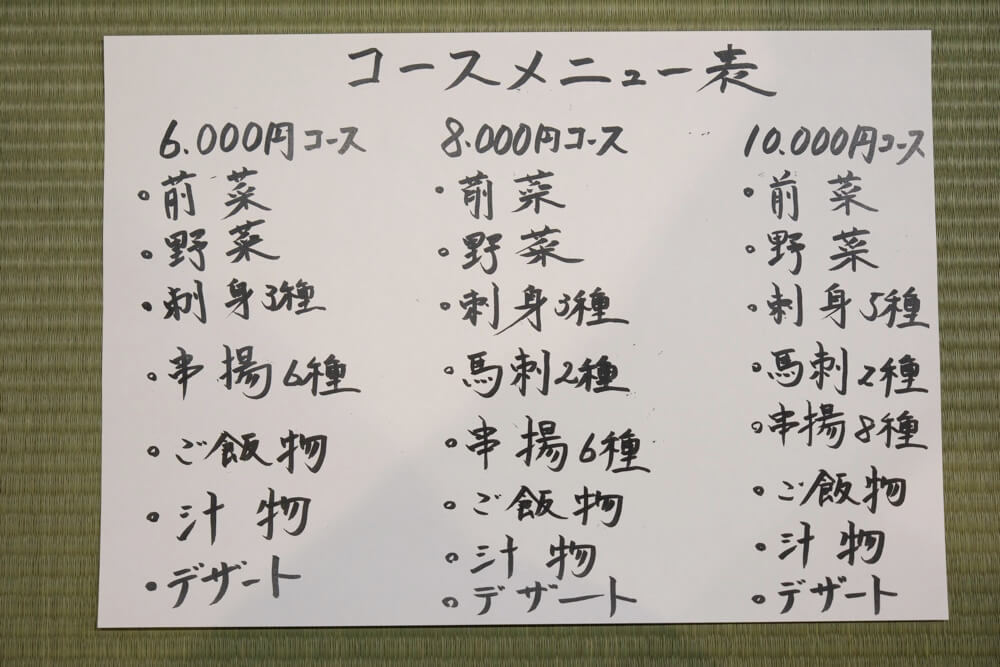 コースメニュー表
6.000円コース
・前菜
・野菜
・刺身3種
・串揚6種
・ご飯物
・汁物
・デザート
8.000円コース
・前菜
・野菜
・刺身3種
・馬刺2種
・串揚6種
・ご飯物
・汁物
・デザート
10.000円コース
・前菜
・野菜
・刺身5種
・馬刺2種
・串揚8種
・ご飯物
・汁物
・デザート